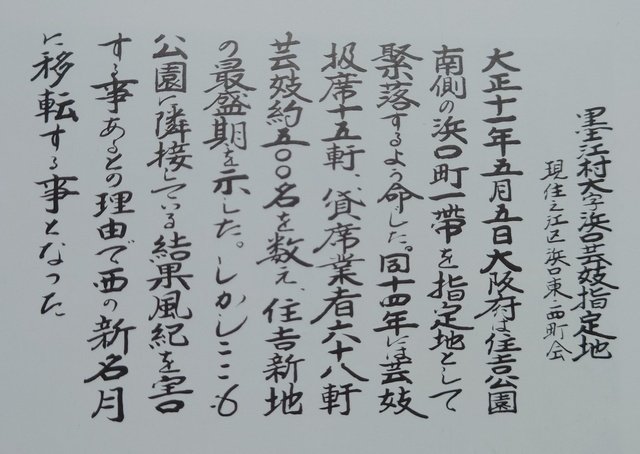 墨江村大字浜口芸妓指定地
現住之江区浜口東、西町会
大正十一年五月五日大阪府は住吉公園
南側の浜口町一帯を指定地として
緊落するよう命した。同十四年には芸妓
扱席十五軒、貸席業者六十八軒
芸妓約五〇〇名を数え、住吉新地
の最盛期を示した。しかしここも
公園に隣接している結果風紀を害
する事あるとの理由で西の新名月
に移転する事となった